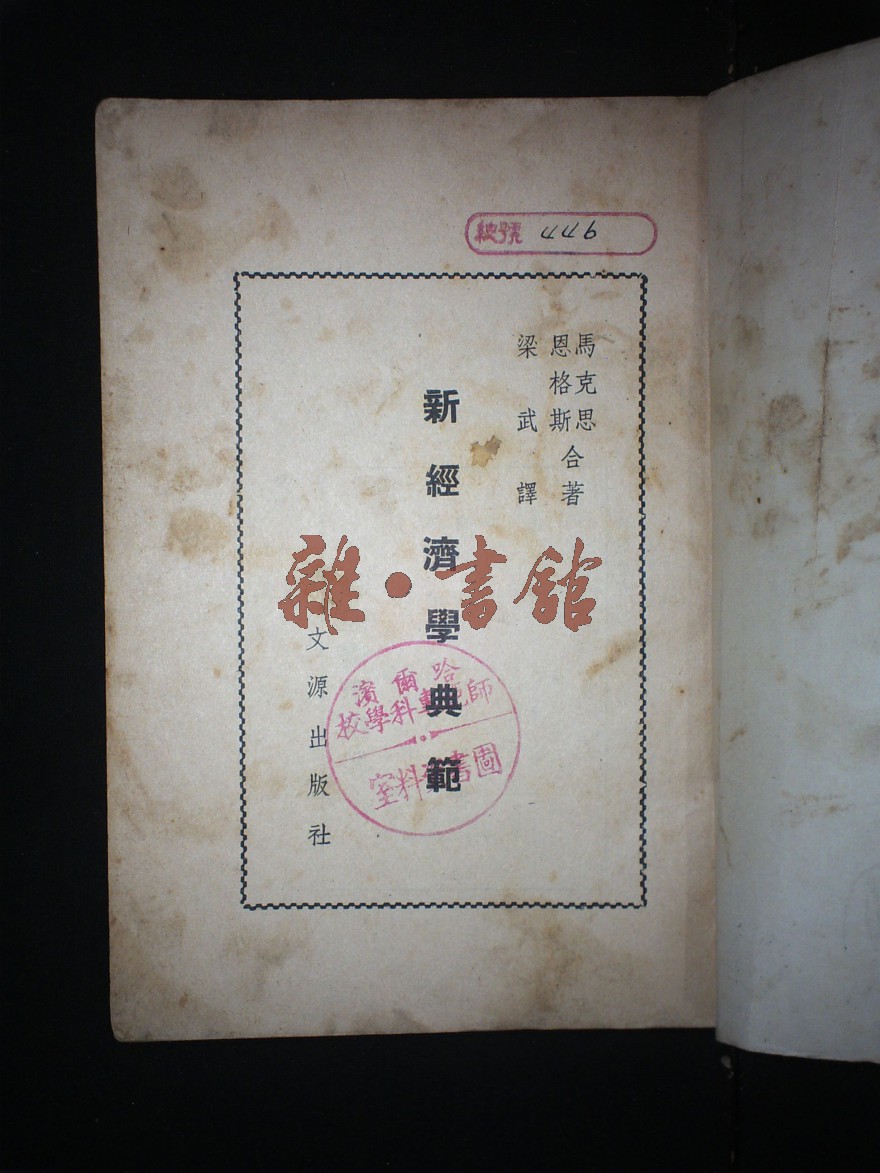 總號 449
馬克思
恩格斯
合著
梁武譯
新經濟學典範
文源出版社
雜·書館
哈爾濱
師範專科學校
圖書資料室